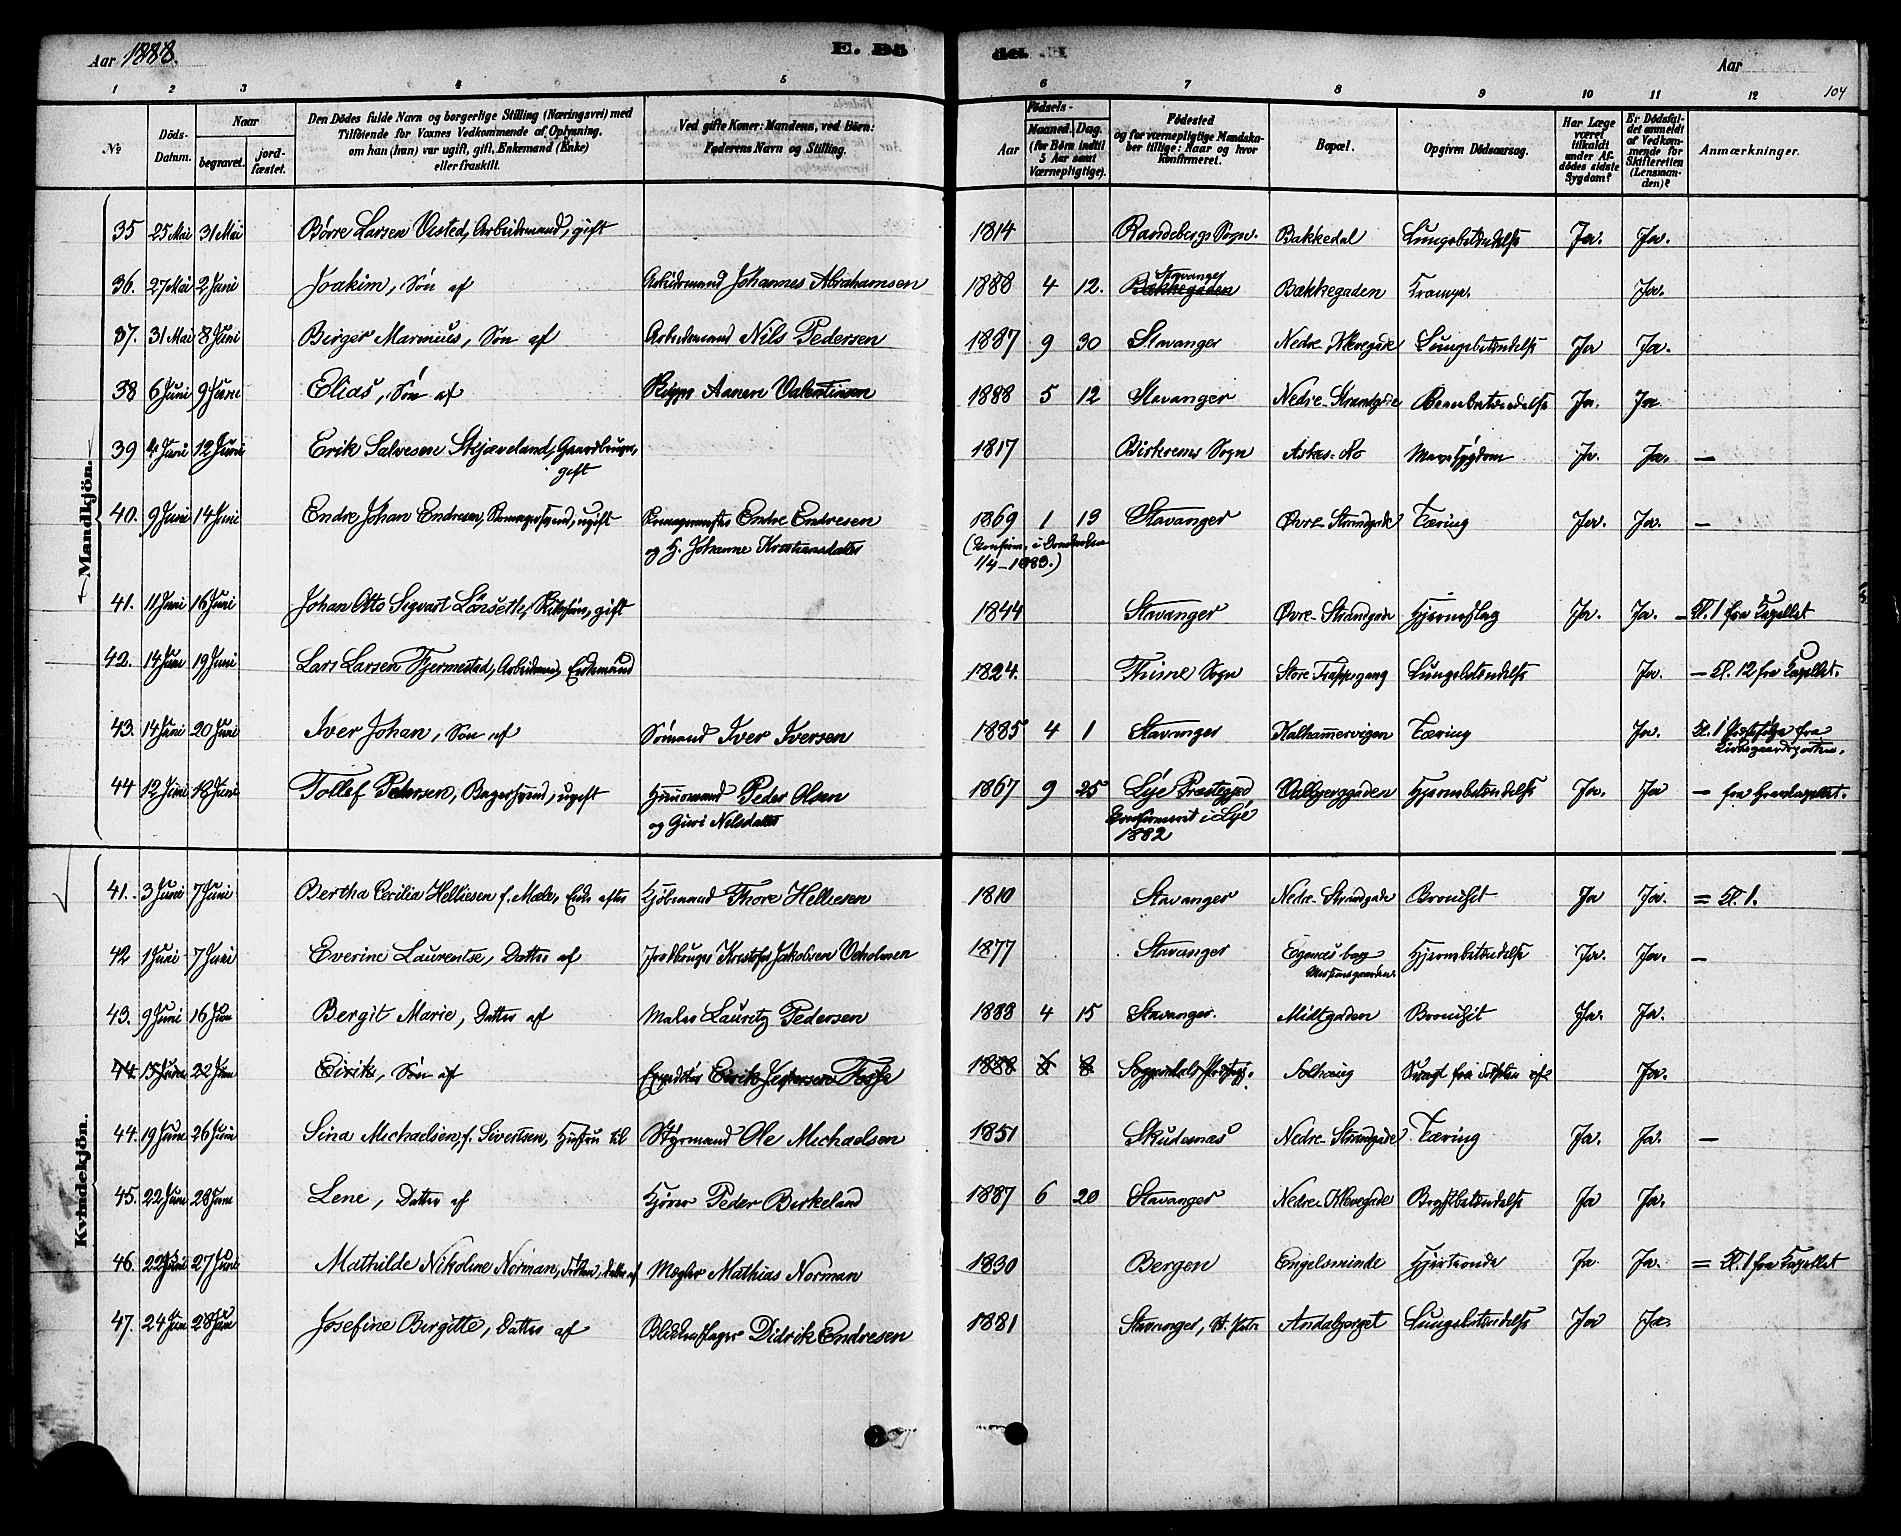 Aar 1888. E. Dö de. Aar
104
1 2 3 4 5 6 7 8 9 10 11 12
No Döds-Datum. Naar begravet. jord-fæstet. Den Dödes fulde Navn og borgerlige Stilling (Næringsvei) med Tilföiende for Voxnes Vedkommende af Oplysning, om han (hun) var ugift, gift, Enkemand (Enke) eller fraskilt. Ved gifte Koner: Mandens, ved Börn: Faderens Navn og Stilling. Födsels- Aar Maaned. Dag. (for Børn indtil 5 Aar samt Værnepligtige). Födested og for værnepligtige Mandskaber tillige: Naar og hvor konfirmeret. Bopæl. Opgiven Dödsaarsag. Har Læge været tilkaldt under Afdödes sidste Sygdom? Er Dödsfaldet anmeldt af Vedkommende for Skifteretten (Lensmanden)? Anmærkninger.
Mandkjön.
35 25 Mai 31 Mai Börre Larsen Visted, Arbeidsmand, gift 1814 Randebergs Sogn. Bakkedal Lungebetændelse Ja. Ja.
36. 27 Mai 2 Juni Joakim, Sön af Arbeidsmand Johannes Abrahamsen 1888 4 12. Stavanger Bakkegaden Bakkegaden Krampe. Ja.
37. 31 Mai 8 Juni Birger Marinius, Sön af Arbeidsmand Nils Pedersen 1887 9 30 Stavanger Nedre Klevegade Lungebetændelse Ja Ja.
38 6 Juni 9 Juni Elias, Sön af Skipper Aanen Valentinsen 1888 5 12 Stavanger Nedre Strandgade Ja. Ja
39 4 Juni 12 Juni Erik Salvesen Skjæveland, Gaardbruger, gift 1817 Birkrems Sogn Mavesygdom Ja. Ja. —
40. 9 Juni 14 Juni Endre Johan Endresen, ugift Endre Endresen 1869 1 13 Stavanger Øvre Strandgade Tæring Ja. Ja. —
og H. Johanne Kristiansdatter
1/4 - 1883.)
41. 11 Juni 16 Juni Johan Otto Sigvart Lönseth, gift 1844 Stavanger Øvre Strandgade Hjerneslag Ja. Ja. — Kl. 1 fra Kapellet
42. 14 Juni 19 Juni Lars Larsen Fjermestad, Arbeidsm., Enkemand 1824. Thime Sogn Store Trappegang Lungebetændelse Ja. — Kl. 12 fra Kapellet.
43. 14 Juni 20 Juni Iver Johan, Sön af Sömand Iver Iversen 1885 4 1 Stavanger Kalhammervigen Tæring Ja. Kl. 1 fra Kirkegaardsporten.
44 12 Juni 18 Juni Tollef Pedersen, Bagersvend, ugift Huusmand Peder Olsen 1867 9 25 Lye Præstegjeld Valbjerggaden Hjernebetændelse Ja. Ja — fra Gravkapellet.
og Guri Nilsdatter Konfirmeret i Lye
1882
Kvindekjön.
41. 3 Juni 7 Juni Bertha Cecilia Helliesen f. Mæle, Enke efter Kjöbmand Thore Helliesen 1810 Stavanger Nedre Strandgade Bronchit Ja Ja. = Kl. 1.
42 1 Juni 7 Juni Everine Laurentse, Datter af Jordbruger Kristofer Jakobsen Veholmen 1877 Stavanger Egenes bag Hjernebetændelse Ja. Ja. —
43. 9 Juni 16 Juni Bergit Marie, Datter af Maler Lauritz Pedersen 1888 4 15 Stavanger. Miltgaden Bronchit Ja. Ja.
44 15 Juni 22 Juni Eirik, Sön af Eirik Fosse 1888 8 Sogndals Præstegj. Solhaug Svagt fra Födselen af Ja.
44. 19 Juni 26 Juni Sina Michaelsen, f. Sivertsen, Hustru til Styrmand Ole Michaelsen 1851 Skudesnæs Nedre Strandgade Tæring Ja. Ja. —
45. 22 Juni 28 Juni Lene, Datter af Kjører Peder Birkeland 1887 6 20 Stavanger Nedre Klevegade Brystbetændelse Ja Ja.
46. 22 Juni 27 Juni Mathilde Nikoline Norman, Datter af Mægler Mathias Norman 1830 Bergen Engelsminde Hjerteonde Ja Ja. = Kl. 1 fra Kapellet
47. 24 Juni 28 Juni Josefine Birgitte, Datter af Blikkenslager Didrik Endresen 1881 Stavanger, St. Petri Arndalgorget Lungebetændelse Ja Ja.